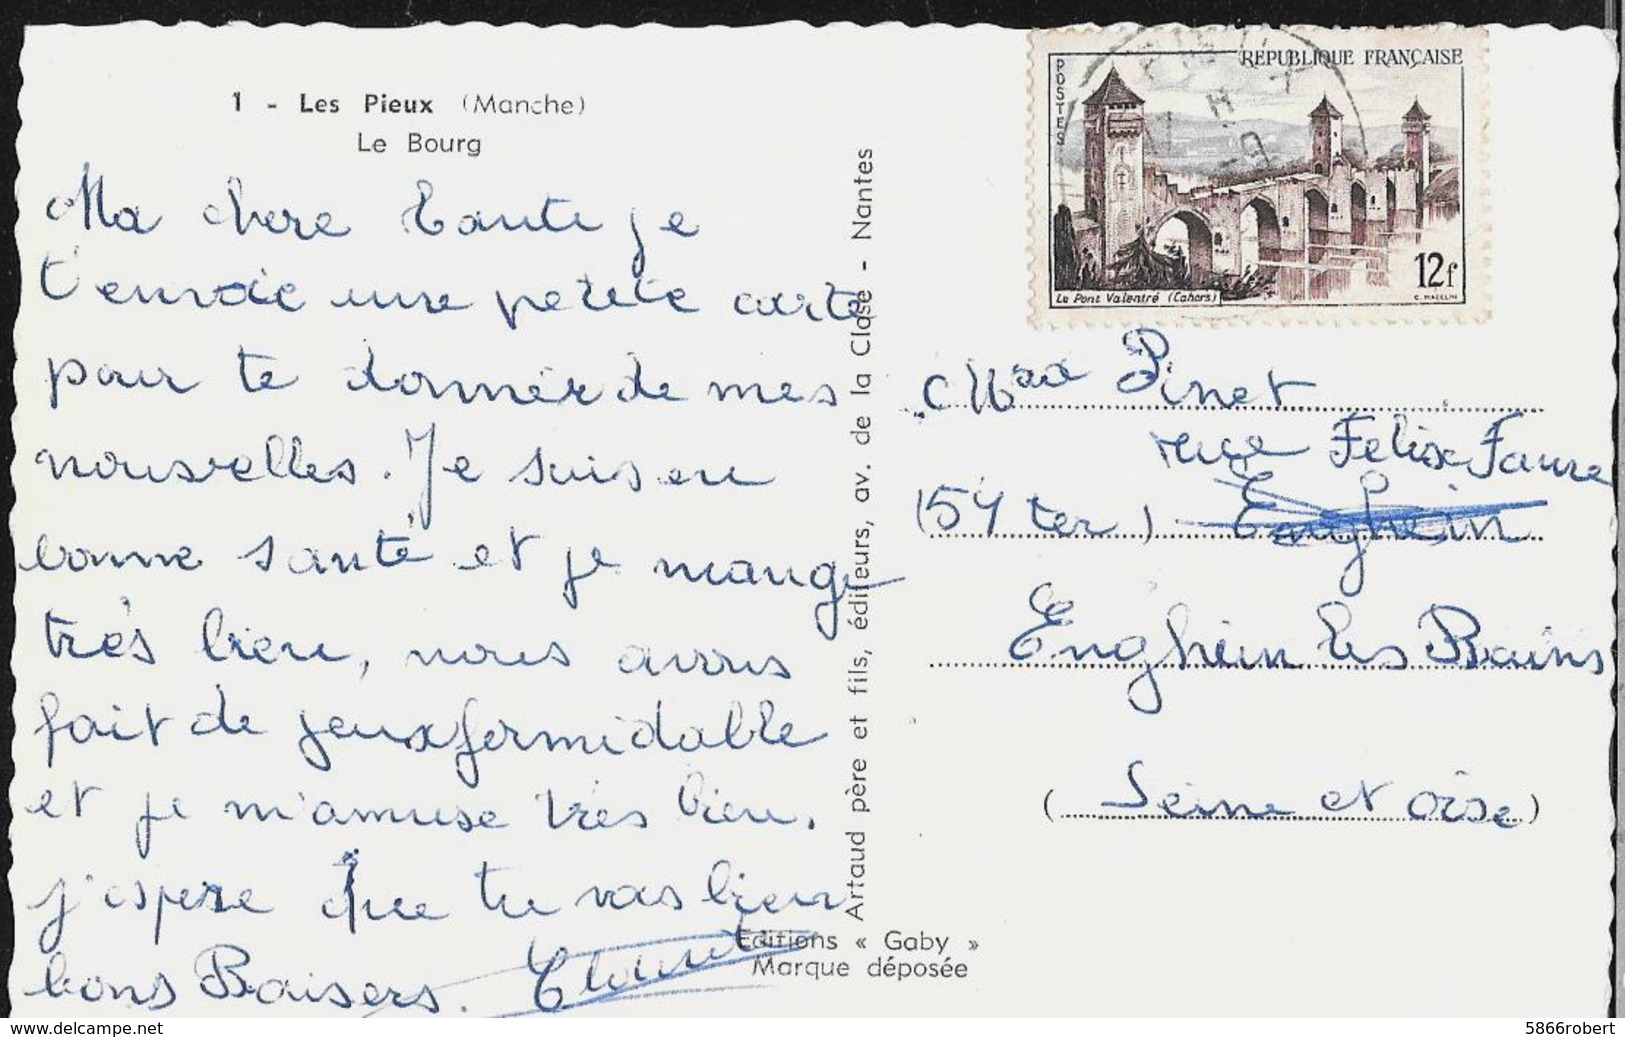 1 - Les Pieux (Manche)
Le Bourg
Ma chere tante je
t'envoie une petite carte
pour te donner de mes
nouvelles. Je suis en
bonne santé et je mange
très bien, nous avons
fait de jeux formidable
et je m'amuse très bien.
j'espere que tu vas bien
bons Baisers.
Artaud père et fils, éditeurs, av. de la Close - Nantes
Editions « Gaby »
Marque déposée
REPUBLIQUE FRANÇAISE
POSTES
12f
Le Pont Valentré (Cahors)
C. MAZELIN
Pinet
rue Felix Faure
(54 ter) Enghein
Enghein les Bains
(Seine et oise)
www.delcampe.net
5866robert